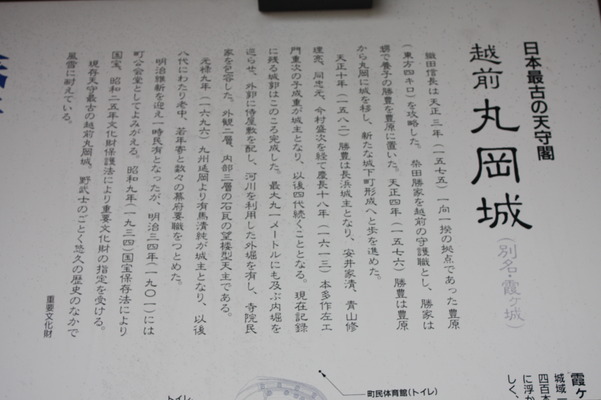 日本最古の天守閣
越前 丸岡城
(別名・霞ヶ城)
織田信長は天正三年(一五七五)一向一揆の拠点であった豊原
(東方四キロ)を攻略した。柴田勝家を越前の守護職とし、勝家は
甥で養子の勝豊を豊原に置いた。天正四年(一五七六)勝豊は豊原
から丸岡に城を移し、新たな城下町形成へと歩を進めた。
天正十年(一五八二)勝豊は長浜城主となり、安井家清、青山修
理亮、同忠元、今村盛次を経て慶長十八年(一六一三)本多作左エ
門重次の子成重が城主となり、以後四代続くこととなる。現在記録
に残る城郭はこのころ完成した。最大九一メートルにも及ぶ内堀を
巡らせ、外郭に侍屋敷を配し、河川を利用した外堀を有し、寺院民
家を包容した。外観二層、内部三層の石瓦の望楼型天主である。
元禄九年(一六九六)九州延岡より有馬清純が城主となり、以後
八代にわたり老中、若年寄と数々の幕府要職をつとめた。
明治維新を迎え一時民有となったが、明治三四年(一九〇一)には
町公会堂としてよみがえる。昭和九年(一九三四)国宝保存法により
国宝、昭和二五年文化財保護法により重要文化財の指定を受ける。
現存天守最古の越前丸岡城。野武士のごとく悠久の歴史のなかで
風雪に耐えている。
重要文化財
霞ヶ
城域一
四百本
に浮か
しく、
町民体育館(トイレ)
トイレ